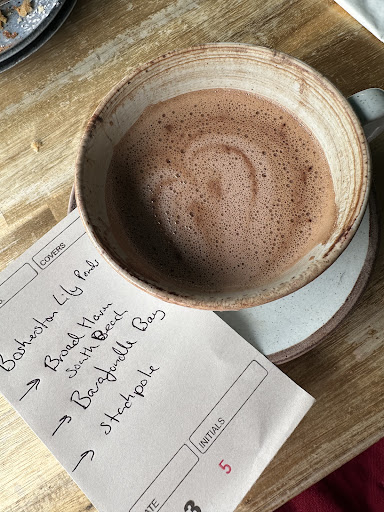 COVERS
Bosherston Lily Ponds
→ Broad Haven
South Beach
→ Barafundle Bay
→ Stackpole
INITIALS
DATE
3
5